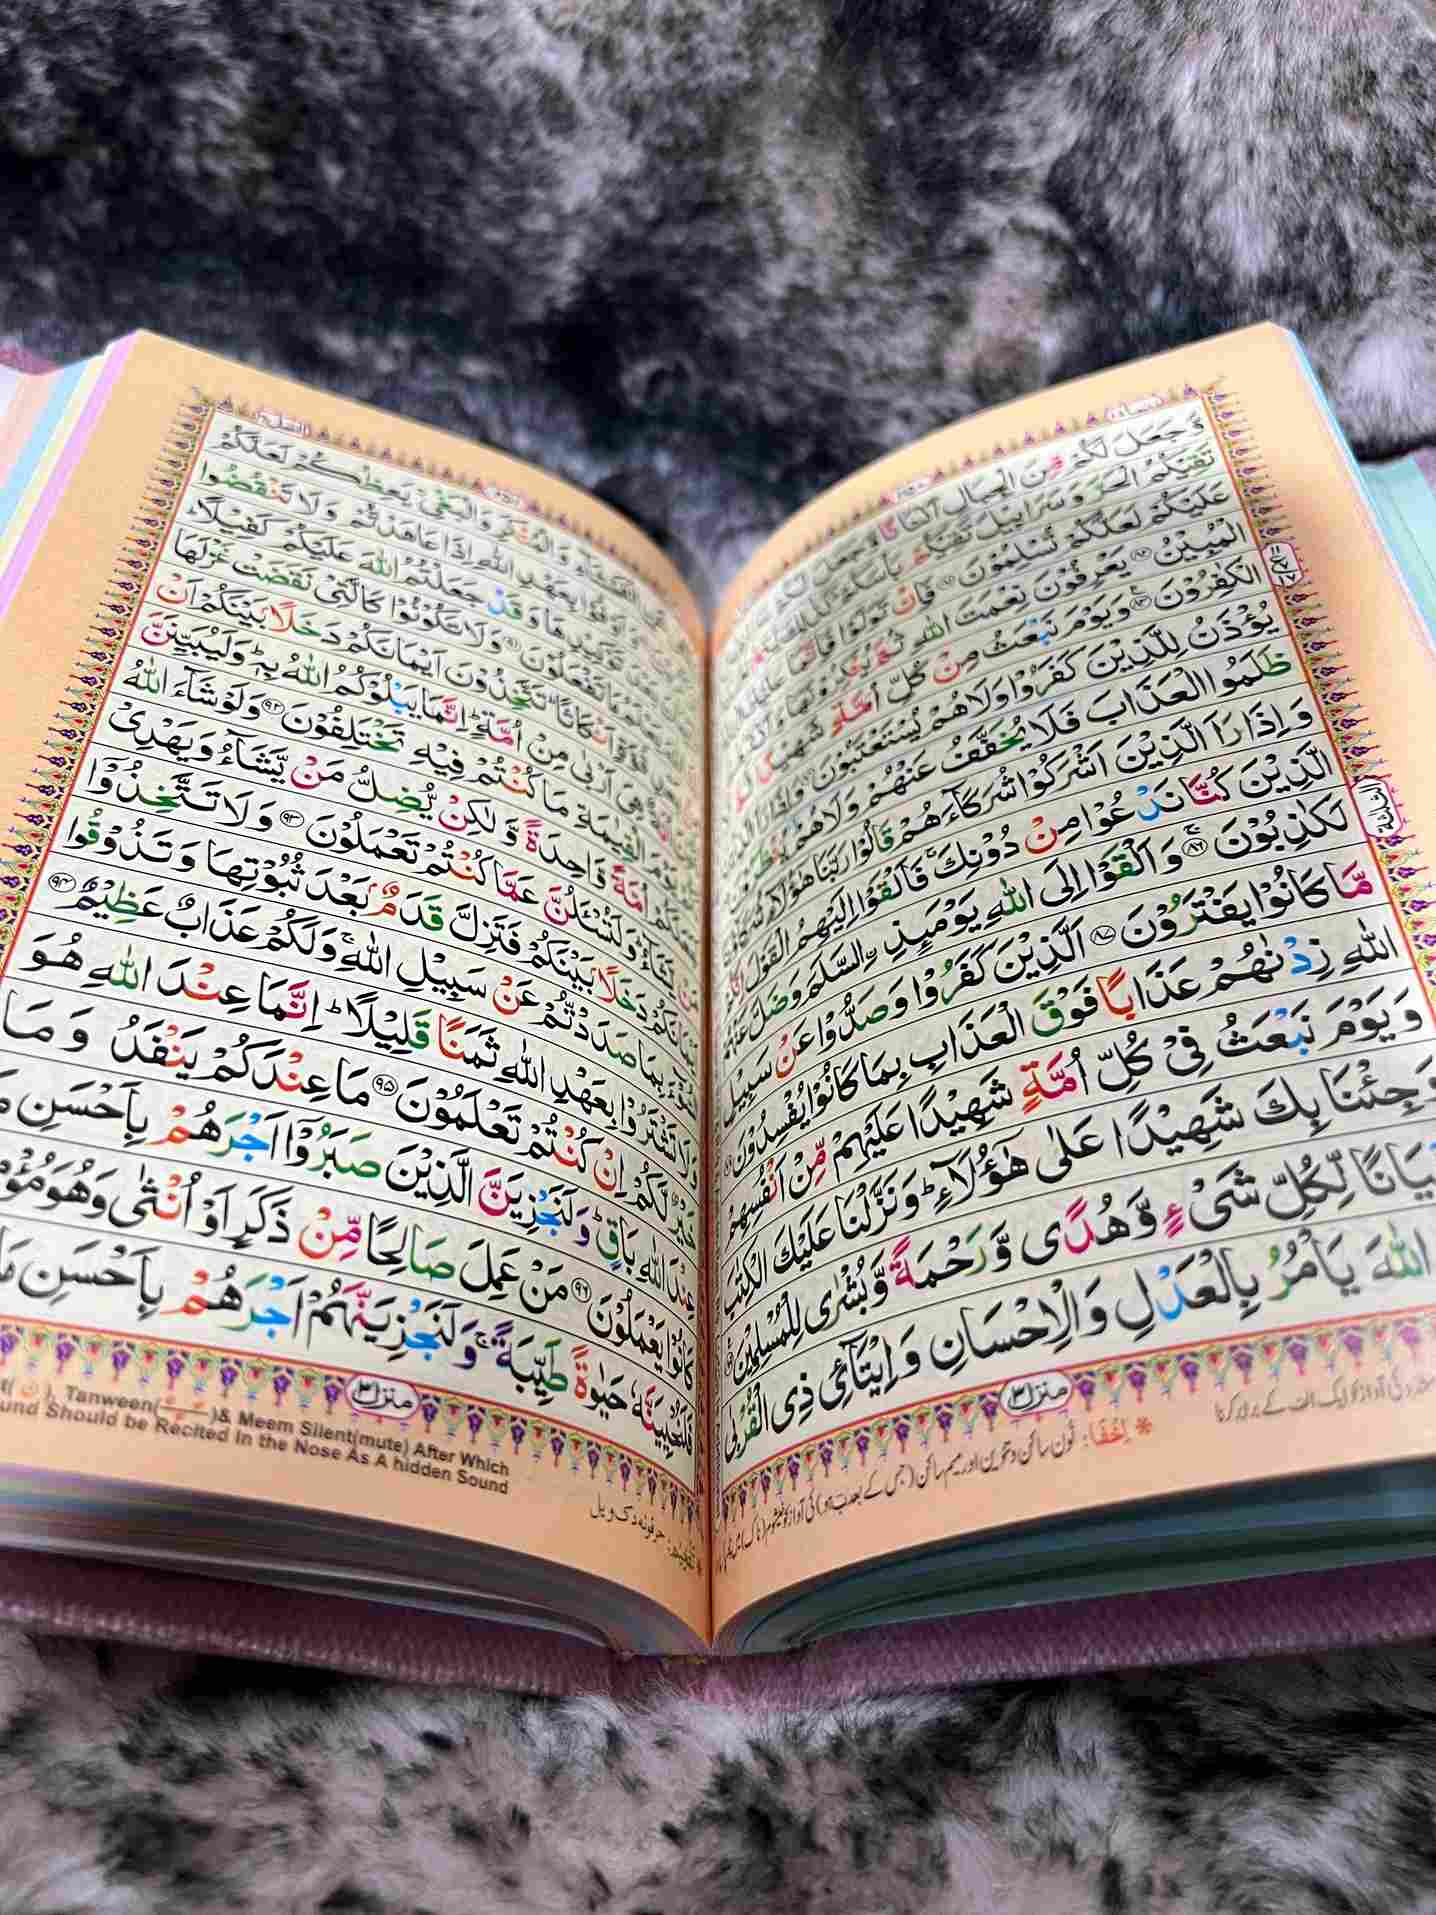 وَّجَعَلَ لَكُمْ مِّنَ الْجِبَالِ اَكْنَانًا وَّجَعَلَ لَكُمْ
تَقِيْكُمُ الْحَرَّ وَسَرَابِيْلَ تَقِيْكُمْ بَاْسَكُمْ
عَلَيْكُمْ لَعَلَّكُمْ تُسْلِمُوْنَ ﴿۸۱﴾ فَاِنْ تَوَلَّوْا فَاِنَّمَا عَلَيْكَ
الْمُبِيْنُ ﴿۸۲﴾ يَعْرِفُوْنَ نِعْمَتَ اللّٰهِ ثُمَّ يُنْكِرُوْنَهَا
الْكٰفِرُوْنَ ﴿۸۳﴾ وَيَوْمَ نَبْعَثُ مِنْ كُلِّ اُمَّةٍ شَهِيْدًا
يُؤْذَنُ لِلَّذِيْنَ كَفَرُوْا وَلَا هُمْ يُسْتَعْتَبُوْنَ وَاِذَا رَاَ
ظَلَمُوا الْعَذَابَ فَلَا يُخَفَّفُ عَنْهُمْ وَلَا هُمْ يُنْظَرُوْنَ
وَاِذَا رَاَ الَّذِيْنَ اَشْرَكُوْا شُرَكَآءَهُمْ قَالُوْا رَبَّنَا هٰٓؤُلَآءِ
الَّذِيْنَ كُنَّا نَدْعُوْا مِنْ دُوْنِكَ ۚ فَاَلْقَوْا اِلَيْهِمُ الْقَوْلَ اِنَّكُمْ
لَكٰذِبُوْنَ ﴿۸۶﴾ وَاَلْقَوْا اِلَى اللّٰهِ يَوْمَئِذِ ۨالسَّلَمَ وَضَلَّ عَنْهُمْ
مَّا كَانُوْا يَفْتَرُوْنَ ﴿۸۷﴾ اَلَّذِيْنَ كَفَرُوْا وَصَدُّوْا عَنْ سَبِيْلِ
اللّٰهِ زِدْنٰهُمْ عَذَابًا فَوْقَ الْعَذَابِ بِمَا كَانُوْا يُفْسِدُوْنَ ﴿۸۸﴾
وَيَوْمَ نَبْعَثُ فِيْ كُلِّ اُمَّةٍ شَهِيْدًا عَلَيْهِمْ مِّنْ اَنْفُسِهِمْ
وَجِئْنَا بِكَ شَهِيْدًا عَلٰى هٰٓؤُلَآءِ ؕ وَنَزَّلْنَا عَلَيْكَ الْكِتٰبَ
تِبْيَانًا لِّكُلِّ شَيْءٍ وَّهُدًى وَّرَحْمَةً وَّبُشْرٰى لِلْمُسْلِمِيْنَ ﴿۸۹﴾
اللّٰهَ يَاْمُرُ بِالْعَدْلِ وَالْاِحْسَانِ وَاِيْتَآئِ ذِي الْقُرْبٰى
منزل ۳
* اِخفَا: نُون ساکن و تنوین اور میم ساکن (جس کے بعد ب ہو) کی آواز کو
الثلثة
النحل ۱۶
الْفَحْشَآءِ وَالْمُنْكَرِ وَالْبَغْيِ ۚ يَعِظُكُمْ لَعَلَّكُمْ
وَاَوْفُوْا بِعَهْدِ اللّٰهِ اِذَا عَاهَدْتُّمْ وَلَا تَنْقُضُوا
تَوْكِيْدِهَا وَقَدْ جَعَلْتُمُ اللّٰهَ عَلَيْكُمْ كَفِيْلًا ؕ
مَا تَفْعَلُوْنَ ﴿۹۱﴾ وَلَا تَكُوْنُوْا كَالَّتِيْ نَقَضَتْ غَزْلَهَا
قُوَّةٍ اَنْكَاثًا ؕ تَتَّخِذُوْنَ اَيْمَانَكُمْ دَخَلًۢا بَيْنَكُمْ اَنْ
هِيَ اَرْبٰى مِنْ اُمَّةٍ ؕ اِنَّمَا يَبْلُوْكُمُ اللّٰهُ بِهٖ ؕ وَلَيُبَيِّنَنَّ
يَوْمَ الْقِيٰمَةِ مَا كُنْتُمْ فِيْهِ تَخْتَلِفُوْنَ ﴿۹۲﴾ وَلَوْ شَآءَ اللّٰهُ
لَجَعَلَكُمْ اُمَّةً وَّاحِدَةً وَّلٰكِنْ يُّضِلُّ مَنْ يَّشَآءُ وَيَهْدِيْ
مَنْ يَّشَآءُ ؕ وَلَتُسْـَٔلُنَّ عَمَّا كُنْتُمْ تَعْمَلُوْنَ ﴿۹۳﴾ وَلَا تَتَّخِذُوْٓا
اَيْمَانَكُمْ دَخَلًۢا بَيْنَكُمْ فَتَزِلَّ قَدَمٌۢ بَعْدَ ثُبُوْتِهَا وَتَذُوْقُوا
السُّوْٓءَ بِمَا صَدَدْتُّمْ عَنْ سَبِيْلِ اللّٰهِ ۚ وَلَكُمْ عَذَابٌ عَظِيْمٌ ﴿۹۴﴾
وَلَا تَشْتَرُوْا بِعَهْدِ اللّٰهِ ثَمَنًا قَلِيْلًا ؕ اِنَّمَا عِنْدَ اللّٰهِ هُوَ
خَيْرٌ لَّكُمْ اِنْ كُنْتُمْ تَعْلَمُوْنَ ﴿۹۵﴾ مَا عِنْدَكُمْ يَنْفَدُ وَمَا
عِنْدَ اللّٰهِ بَاقٍ ؕ وَلَنَجْزِيَنَّ الَّذِيْنَ صَبَرُوْٓا اَجْرَهُمْ بِاَحْسَنِ
كَانُوْا يَعْمَلُوْنَ ﴿۹۶﴾ مَنْ عَمِلَ صَالِحًا مِّنْ ذَكَرٍ اَوْ اُنْثٰى وَهُوَ
فَلَنُحْيِيَنَّهٗ حَيٰوةً طَيِّبَةً ۚ وَلَنَجْزِيَنَّهُمْ اَجْرَهُمْ بِاَحْسَنِ
منزل ۳
Tanween( )& Meem Silent(mute) After Which
Should be Recited In the Nose As A hidden Sound